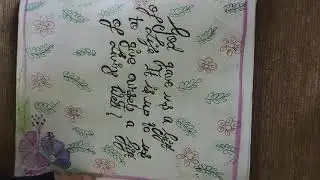 God gave us a gift
of life It is up to us
to give ourselves a gift
of living well!